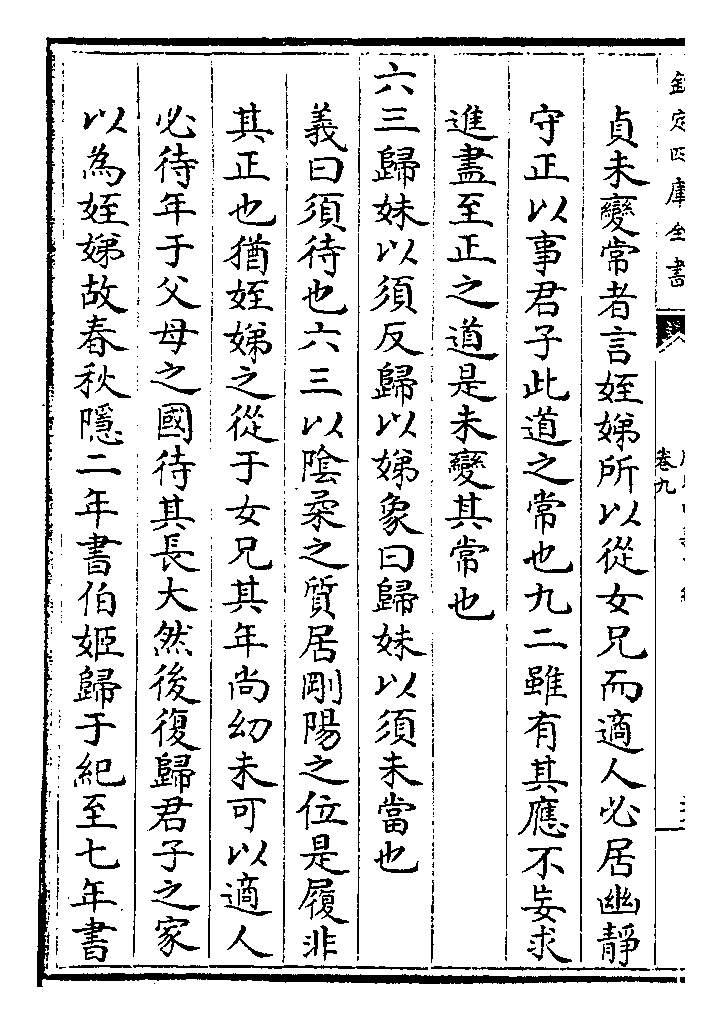 欽定四庫全書
卷九
貞未變常者言姪娣所以從女兄而適人必居幽靜
守正以事君子此道之常也九二雖有其應不妄求
進盡至正之道是未變其常也
六三歸妹以須反歸以娣象曰歸妹以須未當也
義曰須待也六三以陰柔之質居剛陽之位是履非
其正也猶姪娣之從于女兄其年尚幼未可以適人
必待年于父母之國待其長大然後復歸君子之家
以為姪娣故春秋隱二年書伯姬歸于紀至七年書